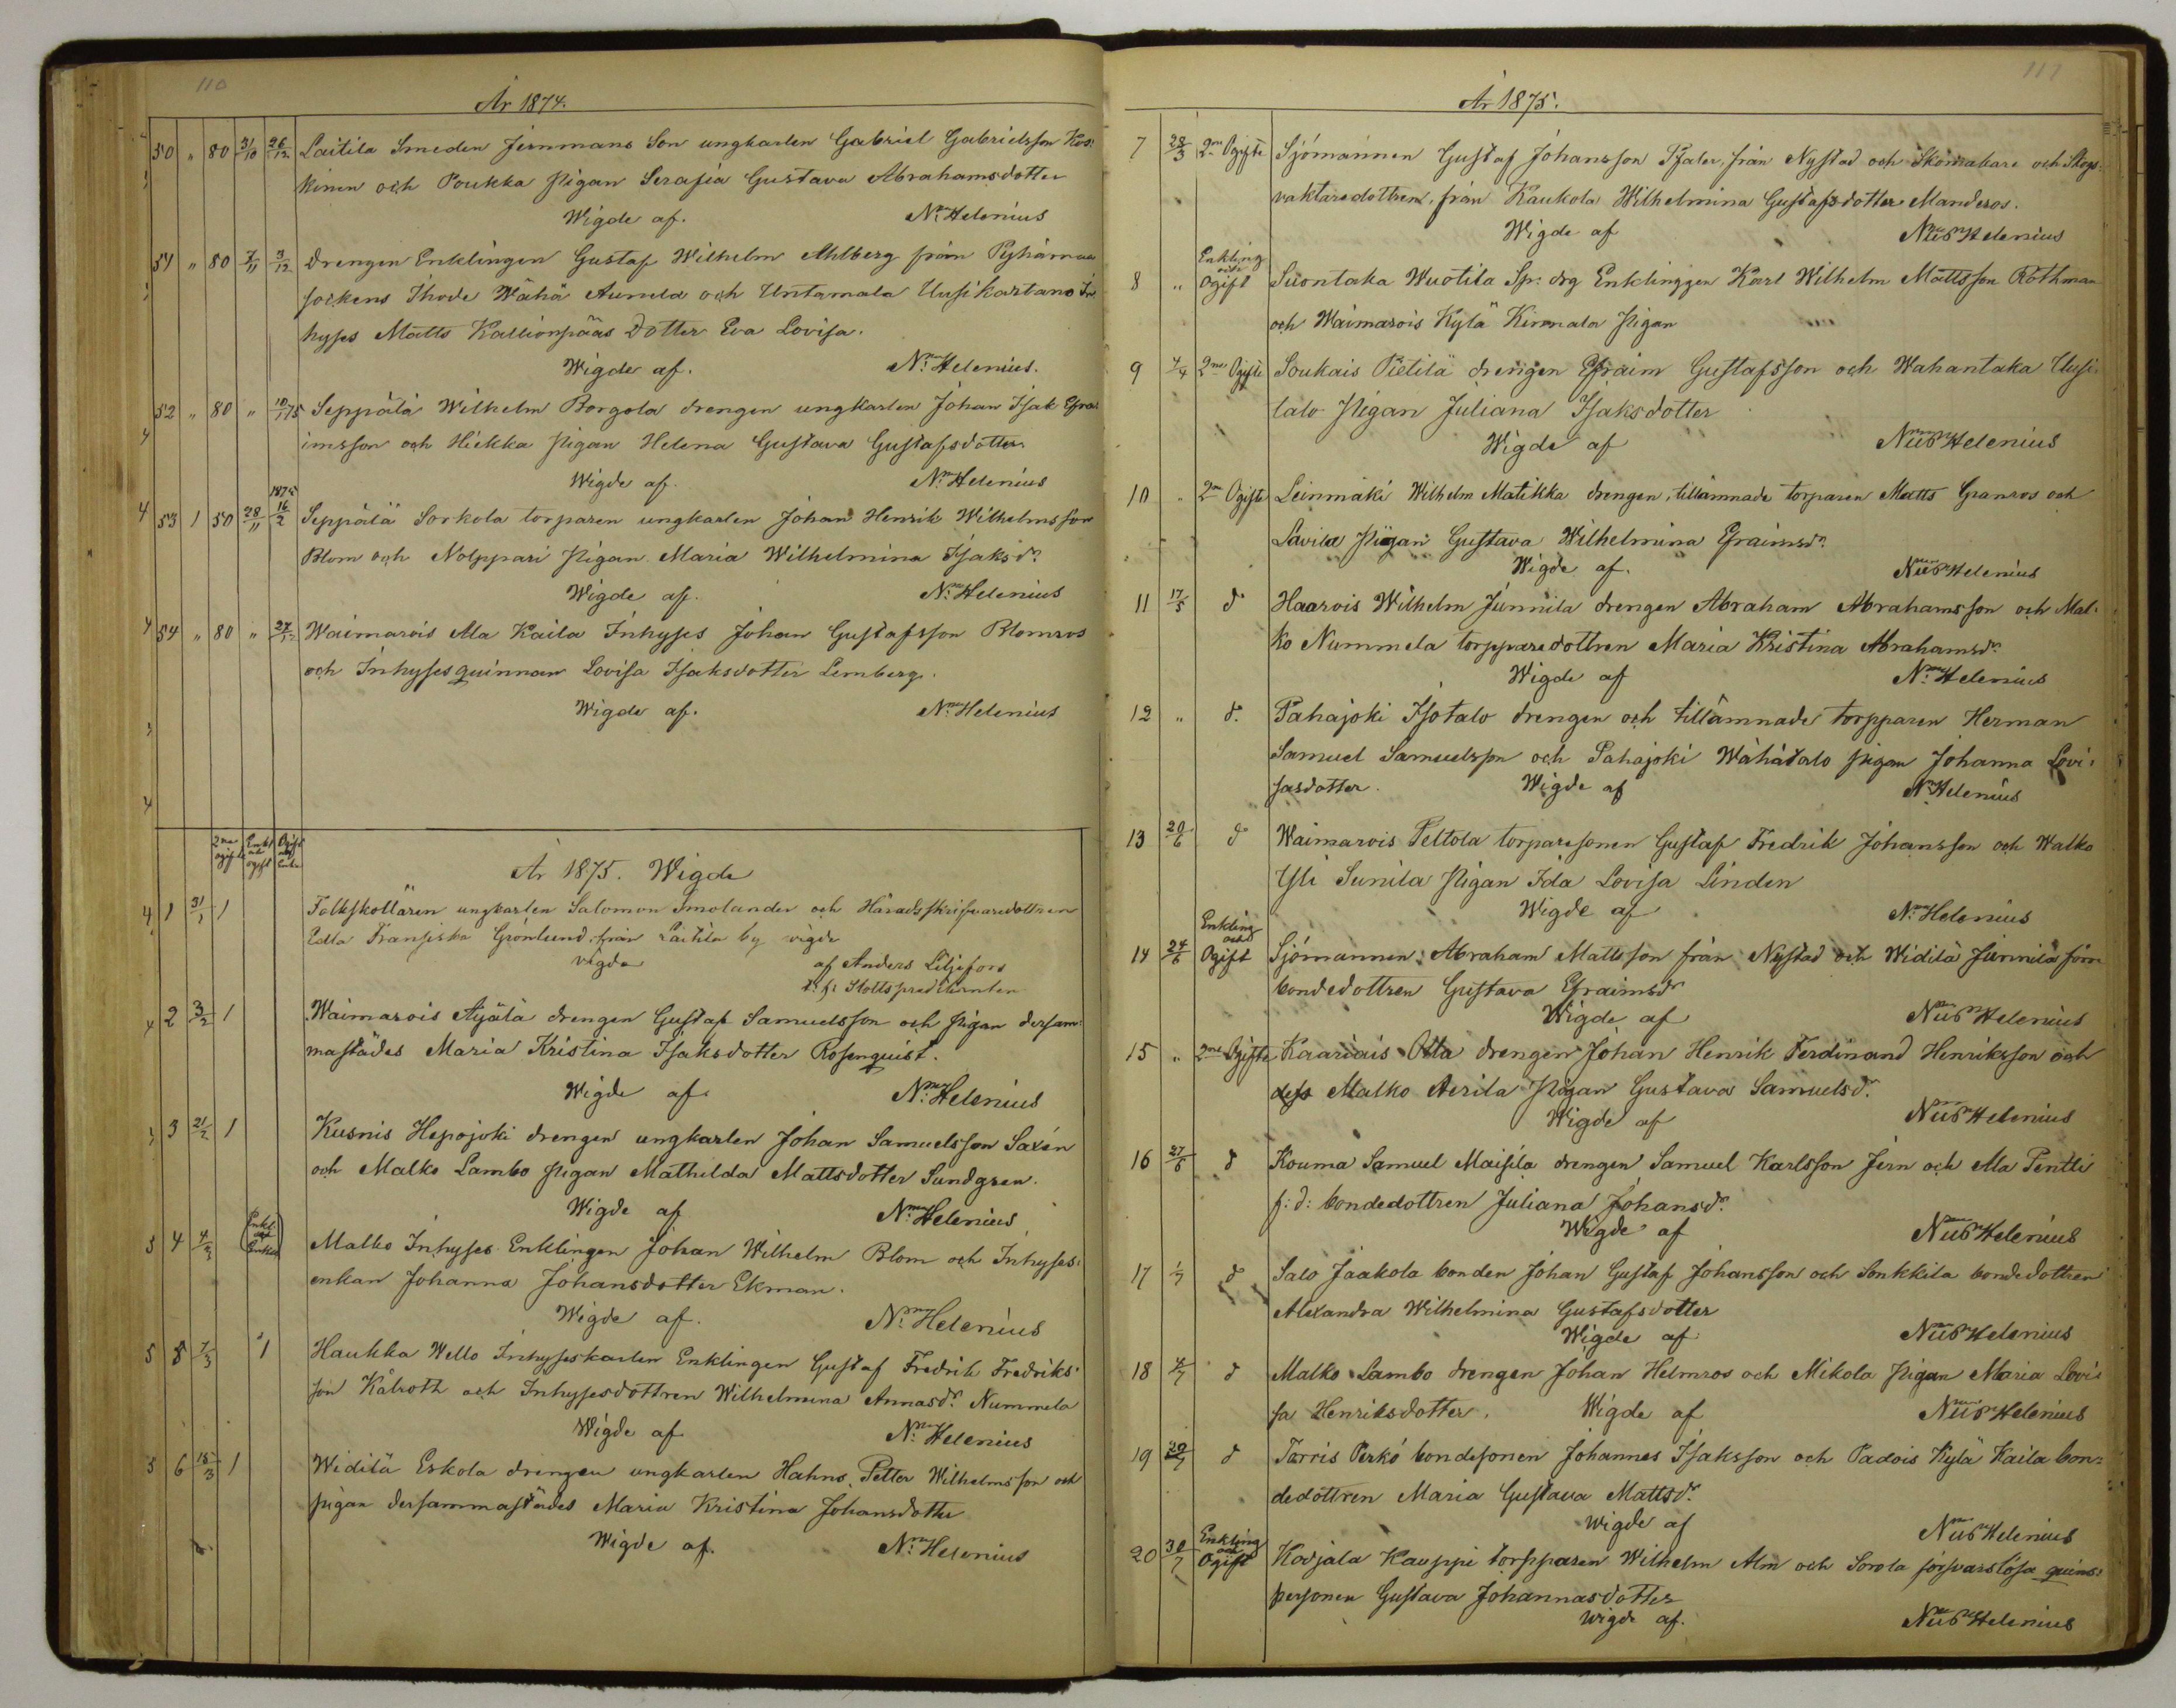 110
År 1874.
50 " 80 31/10 26/12 Laitila Smeden Jernmans Son ungkarlen Gabriel Gabrielsson Kos:
kinen och Poukka Pigan Serafia Gustava Abrahamsdotter
Wigde af. N:m Helenius
51 " 80 7/11 3/12 Drengen Enklingen Gustaf Wilhelm Ahlberg från Pyhämaa
sockens Ihode Wähä Aumela och Untamala Uusikartano In
hyses Matts Kallionpääs Dotter Eva Lovisa.
Wigde af. N:m Helenius.
52 " 80 " 10/1 75 Seppälä Wilhelm Borgola drengen ungkarlen Johan Isak Efra
imsson och Hiekka Pigan Helena Gustava Gustafsdotter
Wigde af. N:m Helenius
53 1 50 28/11 1875 16/2 Seppälä Sorkola torparen ungkarlen Johan Henrik Wilhelmsson
Blom och Nolppari Pigan Maria Wilhelmina Isaksdr
Wigde af. N:m Helenius
54 " 80 " 27/12 Waimarois Ala Kaila Inhyses Johan Gustafsson Blomros
och Inhysesquinnan Lovisa Isaksdotter Lemberg.
Wigde af. N:m Helenius
2ne ogifte Enkl och ogift Ogift och Enka
År 1875. Wigde
1 31/1 1 Folkskolläraren ungkarlen Salomon Smolander och Häradsskrifvaredottren
Edla Fransiska Grönlund från Laitila by wigde
vigde af Anders Liljefors
t.f. Slottspredikanten
2 3/2 1 Waimarois Äijälä drengen Gustaf Samuelsson och Pigan dersam:
mastädes Maria Kristina Isaksdotter Rosenquist.
Wigde af. N:m Helenius
3 21/2 1 Kusnis Hepojoki drengen ungkarlen Johan Samuelsson Saxén
och Malko Lambo Pigan Mathilda Mattsdotter Sundgren.
Wigde af N:m Helenius
4 4/3 (Enkl och Enka) Malko Inhyses Enklingen Johan Wilhelm Blom och Inhyses:
enkan Johanna Johansdotter Ekman.
Wigde af. N:m Helenius
5 7/3 1 Haukka Wello Inhyseskarlen Enklingen Gustaf Fredrik Fredriks:
son Kålroth och Inhysesdottren Wilhelmina Annasdr. Nummela
Wigde af. N:m Helenius
6 15/3 1 Widilä Eskola drengen ungkarlen Hahno, Petter Wilhelmsson och
pigan dersammastädes Maria Kristina Johansdotter
Wigde af. N:m Helenius
111
År 1875.
7 28/3 2ne Ogifte Sjömannen Gustaf Johansson Pfaler, från Nystad och Skomakare och Skogs:
vaktaredottren, från Kaukola Wilhelmina Gustafsdotter Manderos.
Wigde af Nils Helenius
8 " Enkling och Ogift Suontaka Wuotila Sp: drg Enklinggen Karl Wilhelm Mattsson Rothman
och Waimarois Kylä Kinnala Pigan
9 4/4 2ne Ogifte Soukais Pietilä drengen Efraim Gustafsson och Wahantaka Uusi
talo Pigan Juliana Isaksdotter
Wigde af Nils Helenius
10 " 2ne Ogifte Leinmäki Wilhelm Matikka drengen, tillämnade torparen Matts Granros och
Savila Pigan Gustava Wilhelmina Efraimsdr.
Wigde af. Nils Helenius
11 17/5 d:o Haarois Wilhelm Junnila drengen Abraham Abrahamsson och Mal:
ko Nummela torpparedottren Maria Kristina Abrahamsdr.
Wigde af N:m Helenius
12 " d:o Pahajoki Isotalo drengen och tillämnade torpparen Herman
Samuel Samuelsson och Pahajoki Wähätalo pigan Johanna Lovi:
sasdotter. Wigde af N:m Helenius
13 20/6 d:o Waimarois Peltola torparesonen Gustaf Fredrik Johansson och Walko
Yli Sunila Pigan Ida Lovisa Linden
Wigde af N:m Helenius
14 24/6 Enkling och Ogift Sjömannen Abraham Mattsson från Nystad och Widilä Junnila förre
bondedottren Gustava Efraimsdr
Wigde af Nils Helenius
15 " 2ne Ogifte Kaariais Otta drengen Johan Henrik Ferdinand Henriksson och
dess Malko Aerila Pigan Gustava Samuelsdr.
Wigde af Nils Helenius
16 27/6 d:o Kouma Samuel Maisila drengen Samuel Karlsson Jern och Ala Pentti
f: d: bondedottren Juliana Johansdr.
Wigde af Nils Helenius
17 1/7 d:o Salo Jaakola bonden Johan Gustaf Johansson och Sonkkila bondedottren
Alexandra Wilhelmina Gustafsdotter
Wigde af Nils Helenius
18 4/7 d:o Malko Lambo drengen Johan Helmros och Mikola Pigan Maria Lovi:
sa Henriksdotter. Wigde af Nils Helenius
19 29/7 d:o Torris Perkö bondesonen Johannes Isaksson och Padois Kylä Kaila bon:
dedottren Maria Gustava Mattsdr.
Wigde af Nils Helenius
20 30/7 Enkling och Ogift Kodjala Kauppi torpparen Wilhelm Alm och Sorola försvarslösa quins:
personen Gustava Johannasdotter
Wigde af. Nils Helenius